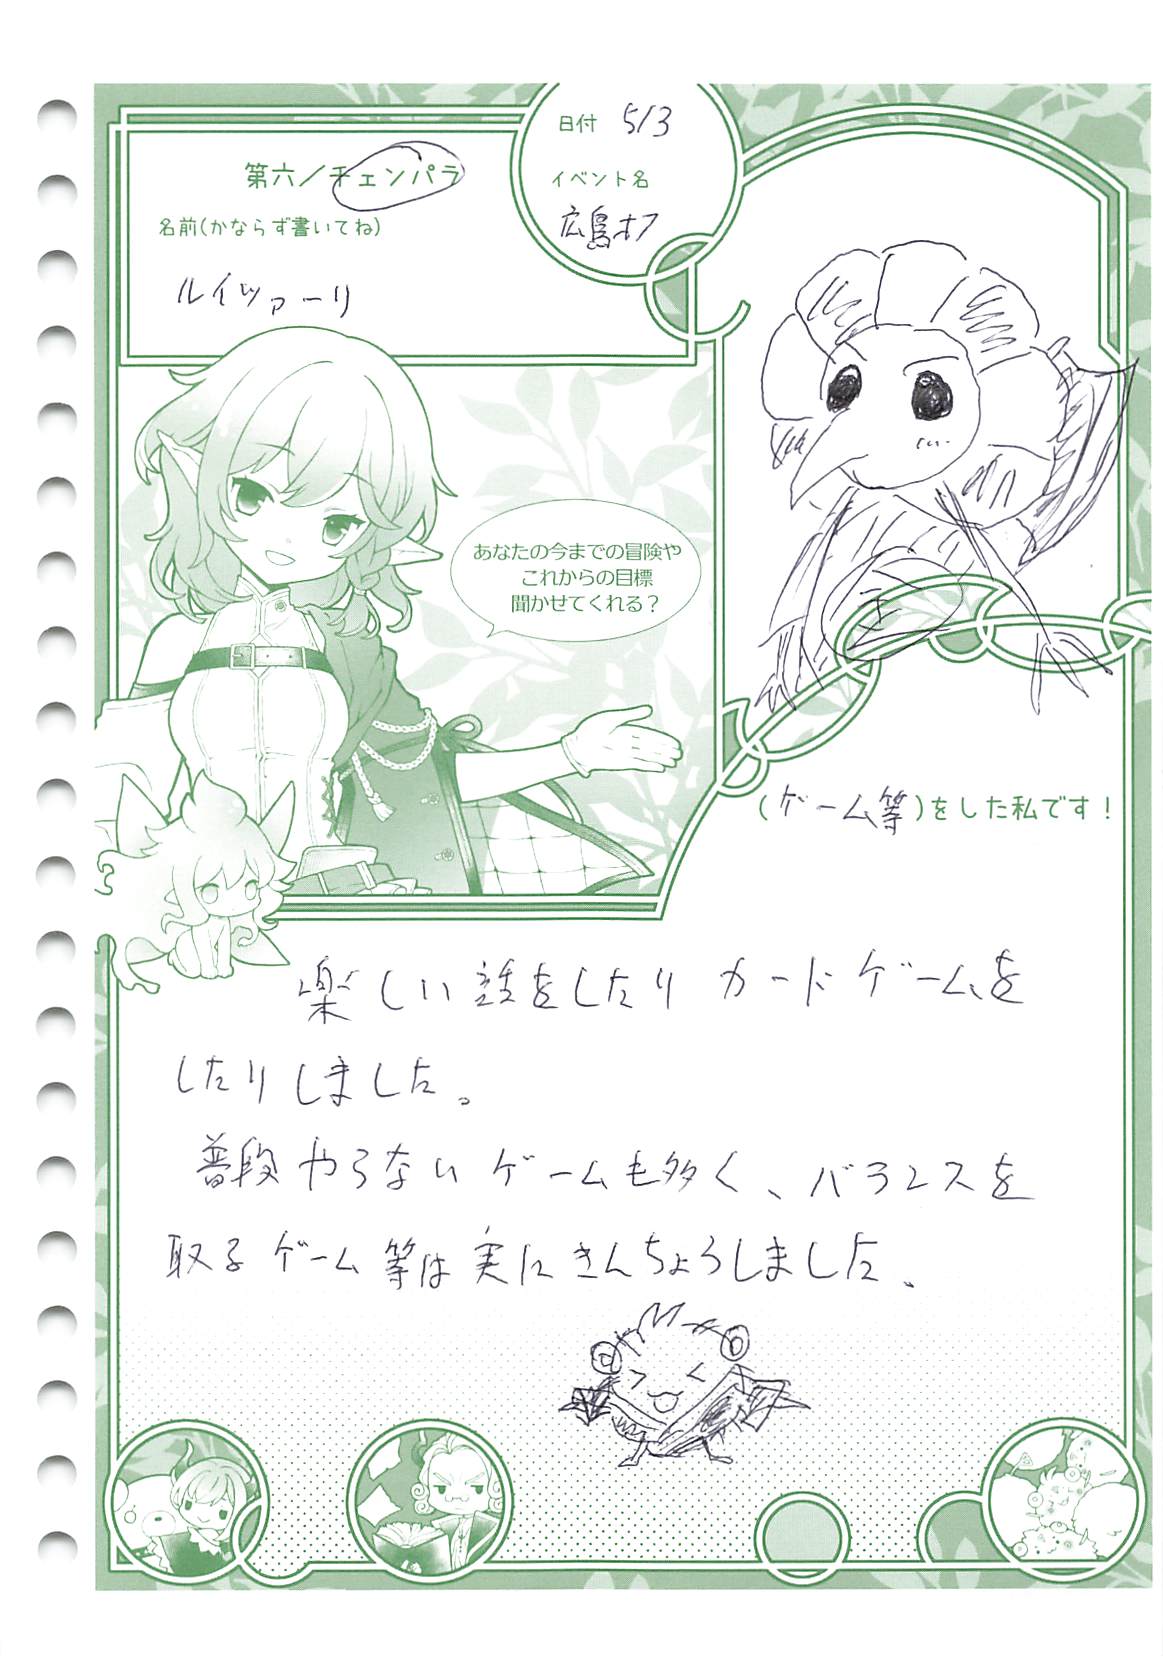 日付 5/3
イベント名
広島オフ
第六／チェンパラ
名前(かならず書いてね)
ルイツァーリ
あなたの今までの冒険や
これからの目標
聞かせてくれる？
(ゲーム等)をした私です！
楽しい話をしたりカードゲームを
したりしました。
普段やらないゲームも多く、バランスを
取るゲーム等は実にきんちょうしました。